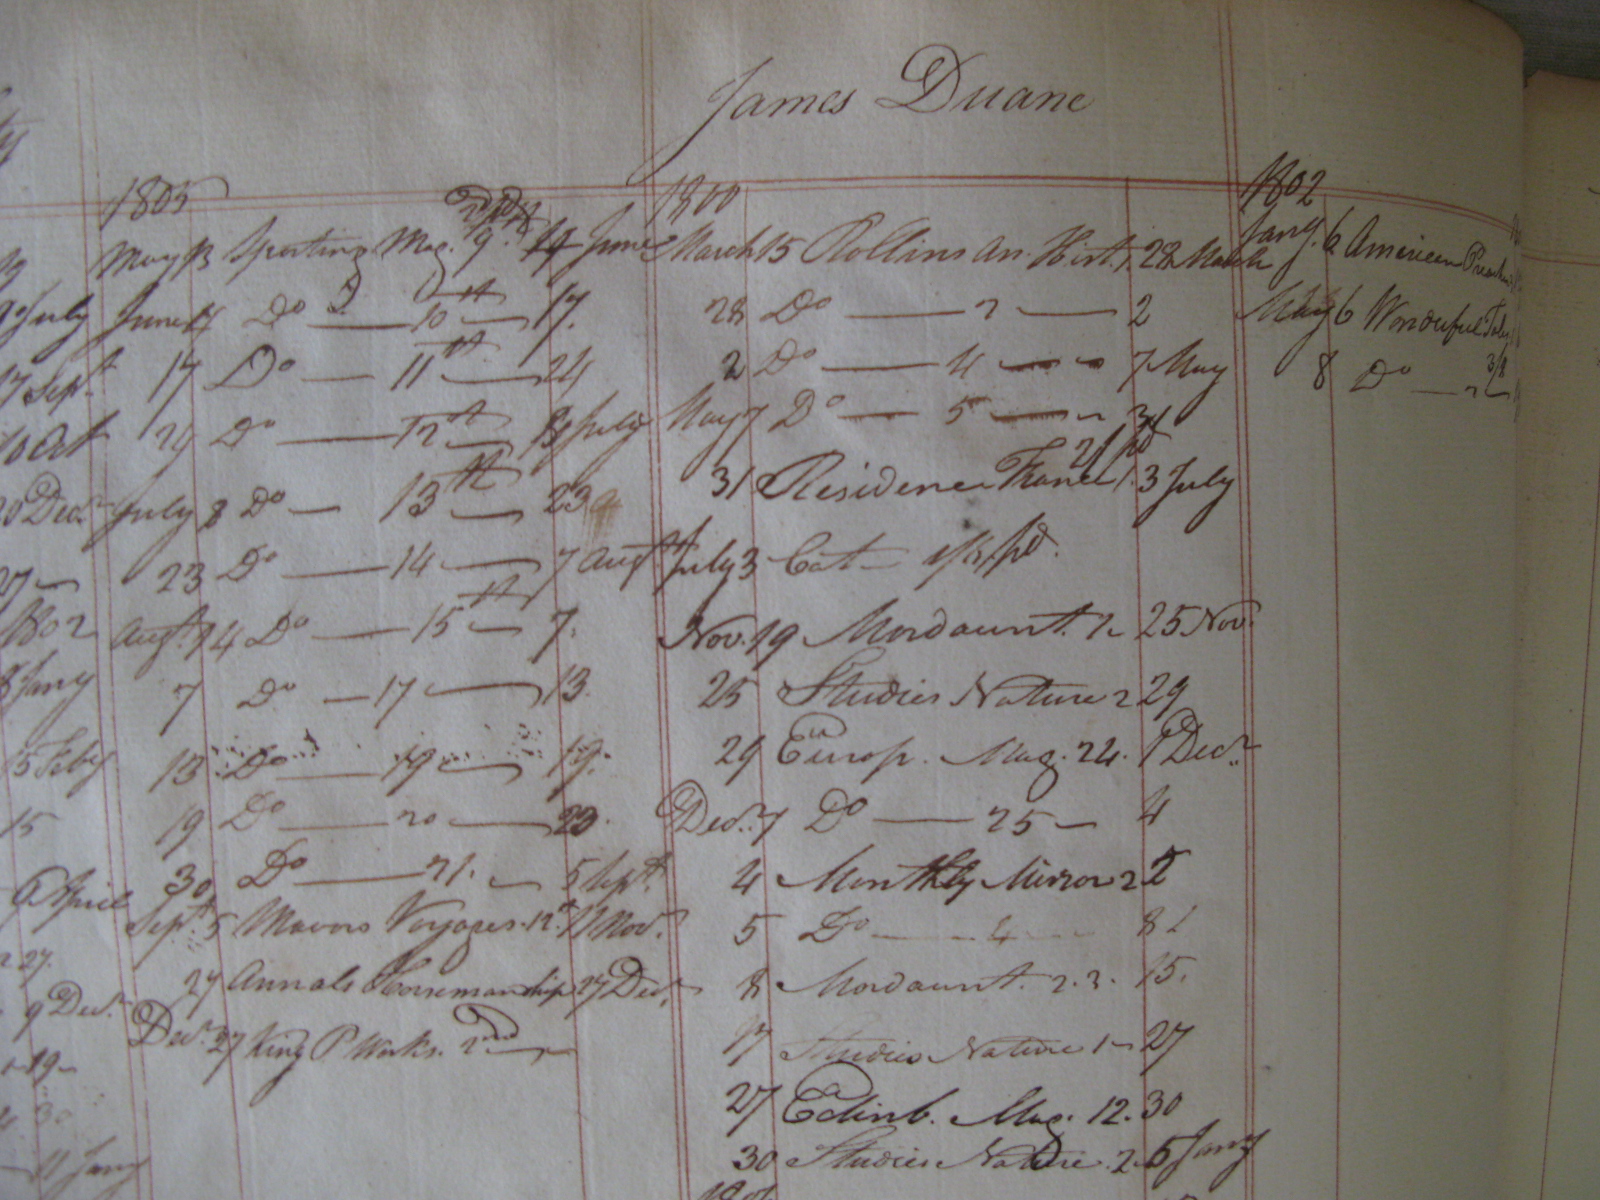 James Duane
1805
May 13 Sporting Mag. 9. 14 June
June 14 Do 10th 17.
17 Do 11th 24
24 Do 12th 8 July
July 8 Do 13th 23
23 Do 14 7 Augt
Augt. 14 Do 15th 7.
7 Do 17 13.
13 Do 19 19.
19 Do 20 23.
30 Do 21. 5 Sept.
Sept. 5 Mavors Voyages. 12. 7 Nov.
27 Annals Horsemanship 27 Decr.
Decr. 27 King P Works. 2nd
9 July
17 Sept.
10 Oct
20 Decr
27
1802
8 Jany
15 Feby
15
6 April
27.
9 Decr.
19
30
11 Jany
1800
March 15 Rollins An. Hist. 1. 28 March
28 Do 2 2
2 Do 4 7 May
May 7 Do 5 31
31 Residence France 1. 3 July
July 3 Cat pd.
Nov. 19 Mordaunt. 1 25 Nov.
25 Studies Nature 2 29
29 Europ. Mag. 24. 1 Decr.
Decr. 1 Do 25 4
4 Monthly Mirror 2 5
5 Do 4 8
8 Mordaunt. 2. 3. 15.
17 Studies Nature 1 27
27 Edinb. Mag. 12. 30
30 Studies Nature. 2 5 Jany
1802
Jany. 6 American
May 6 Wonderful
8 Do 2